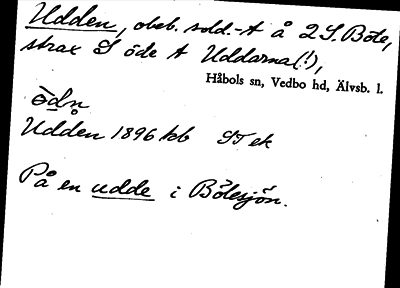 Udden, obeb. sold.-t å 2 S. Böle,
strax S öde t Uddarna(!),
Håbols sn, Vedbo hd, Älvsb. l.
òdn
Udden 1896 kb ST ek
På en udde i Bölesjön.